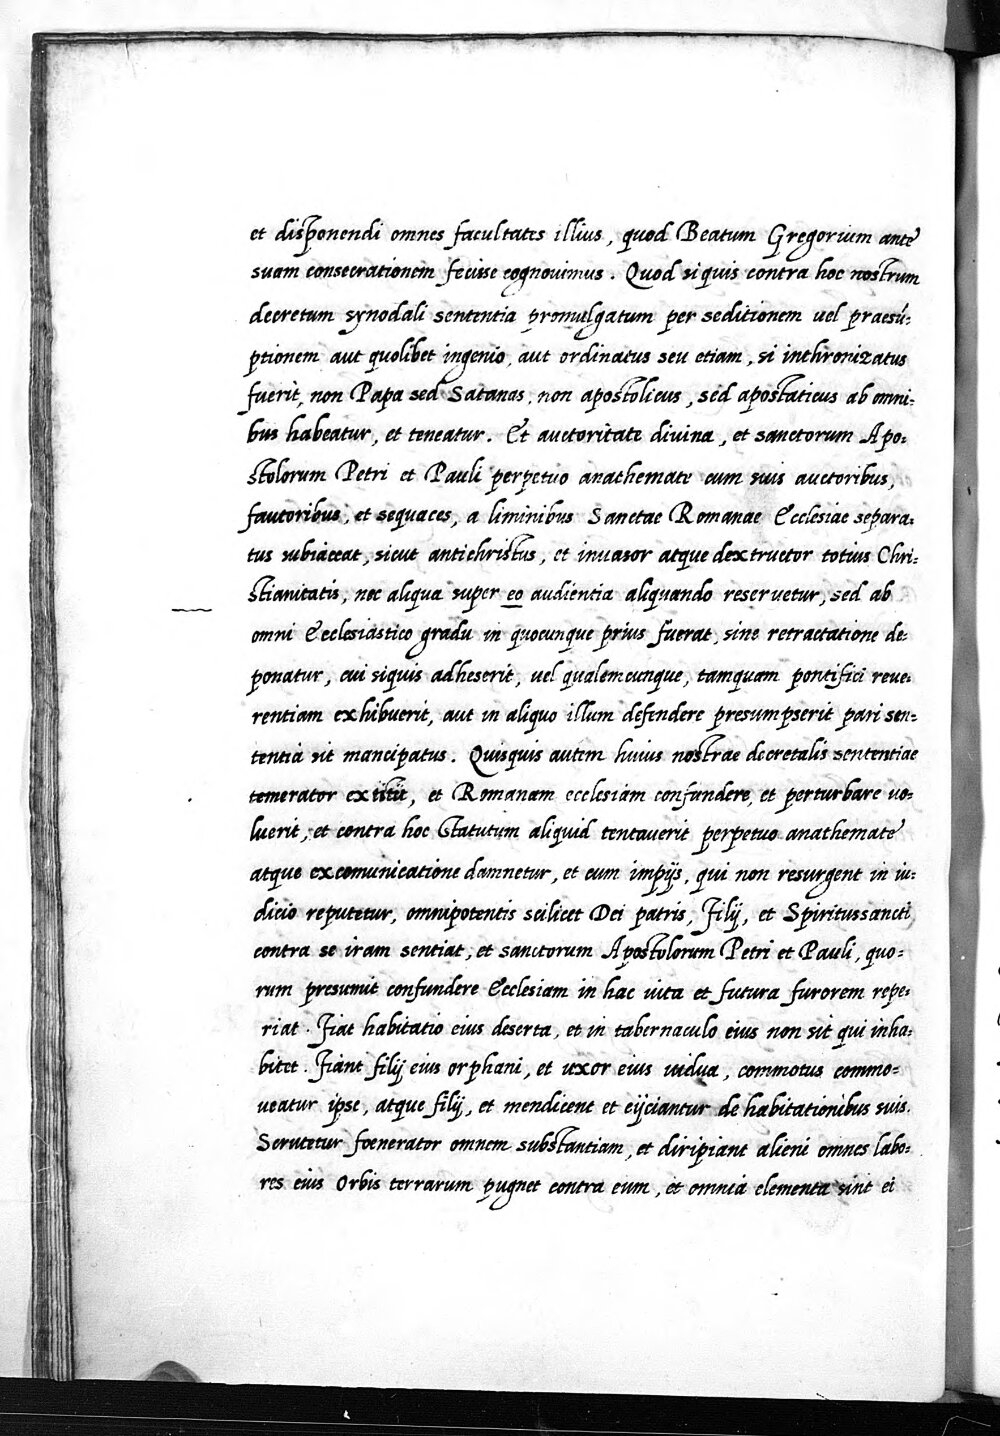 et disponendi omnes facultates illius, quod Beatum Gregorium ante
suam consecrationem fecisse cognouimus. Quod siquis contra hoc nostrum
decretum synodali sententia promulgatum per seditionem uel praesú=
ptionem aut quolibet ingenio, aut ordinatus seu etiam, si inthronizatus
fuerit, non Papa sed Satanas, non apostolicus, sed apostaticus ab omni=
bus habeatur, et teneatur. Et auctoritate diuina, et sanctorum Apo=
stolorum Petri et Pauli perpetuo anathemate cum suis auctoribus,
fautoribus, et sequaces, a liminibus Sanctae Romanae Ecclesiae separa=
tus subiaceat, sicut antichristus, et inuasor atque dextructor totius Chri=
stianitatis, nec aliqua super eo audientia aliquando reseruetur, sed ab
omni Ecclesiastico gradu in quocunque prius fuerat, sine retractatione de=
ponatur, cui siquis adheserit, uel qualemcunque, tamquam pontifici reue=
rentiam exhibuerit, aut in aliquo illum defendere presumpserit pari sen=
tentia sit mancipatus. Quisquis autem huius nostrae decretalis sententiae
temerator extitit, et Romanam ecclesiam confundere, et perturbare uo=
luerit, et contra hoc Statutum aliquid tentauerit perpetuo anathemate
atque excomunicatione damnetur, et cum impijs, qui non resurgent in iu=
dicio reputetur, omnipotentis scilicet Dei patris, Filij, et Spiritussancti
contra se iram sentiat, et sanctorum Apostolorum Petri et Pauli, quo=
rum presumit confundere Ecclesiam in hac uita et futura furorem repe=
riat. Fiat habitatio eius deserta, et in tabernaculo eius non sit qui inha=
bitet. Fiant filij eius orphani, et uxor eius uidua, commotus commo=
ueatur ipse, atque filij, et mendicent et eijciantur de habitationibus suis.
Serutetur foenerator omnem substantiam, et diripiant alieni omnes labo=
res eius Orbis terrarum pugnet contra eum, et omnia elementa sint ei